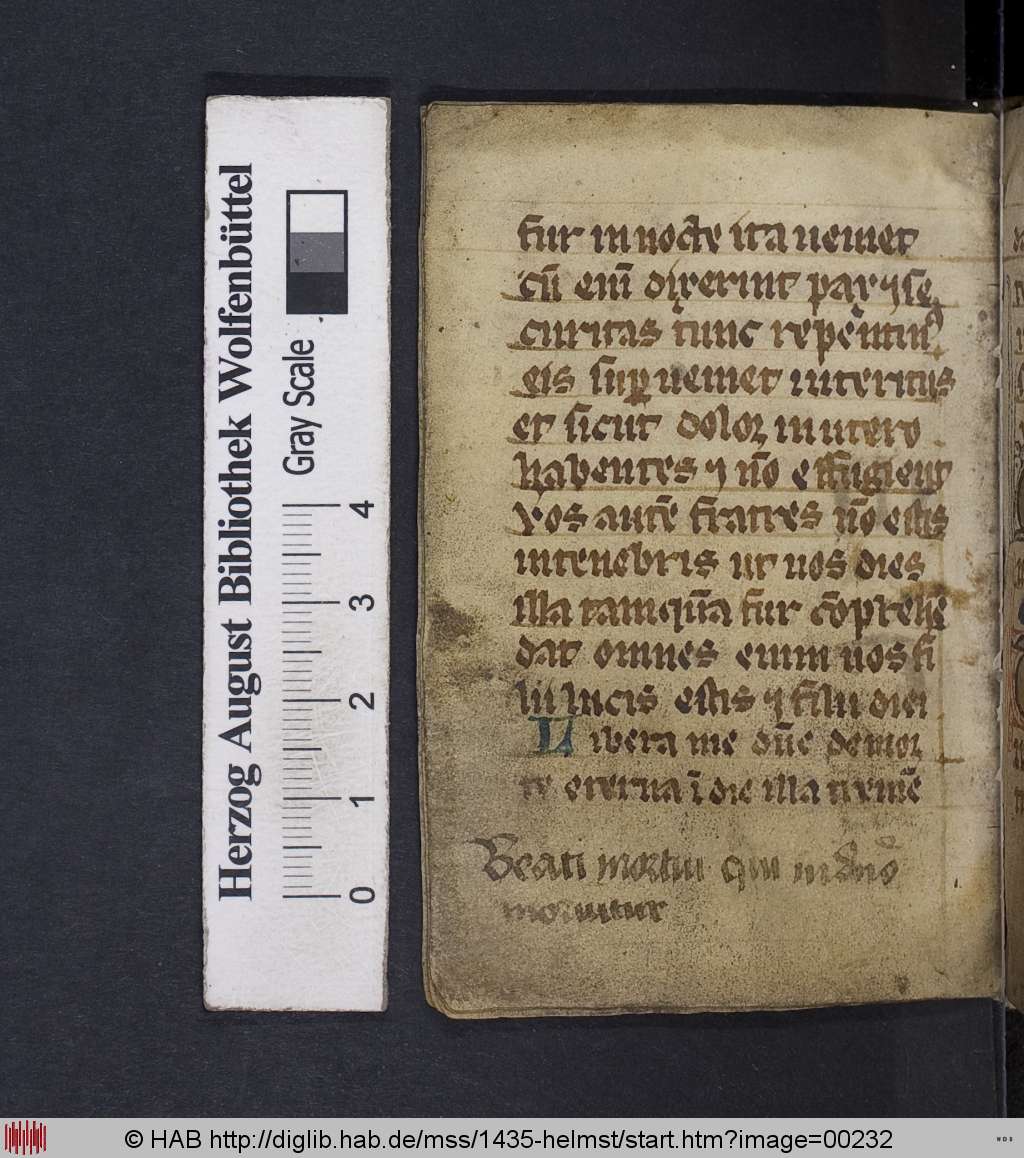 Herzog August Bibliothek Wolfenbüttel
Gray Scale
0 1 2 3 4
fur in nocte ita ueniet
cū eni̅ dixerint pax ⁊ se
curitas tunc repentinꝰ
eis suꝑueniet interitus
et sicut doloꝛ in utero
habentes ⁊ nō effugient
Vos autē fratres nō estis
in tenebris ut uos dies
illa tamquā fur cōprehē
dat omnes enim uos fi
lii lucis estis ⁊ filii diei
Libera me dn̄e de moꝛ
te eterna ī die illa tremē
Beati mortui qui in dn̄o
moriuntur
© HAB http://diglib.hab.de/mss/1435-helmst/start.htm?image=00232